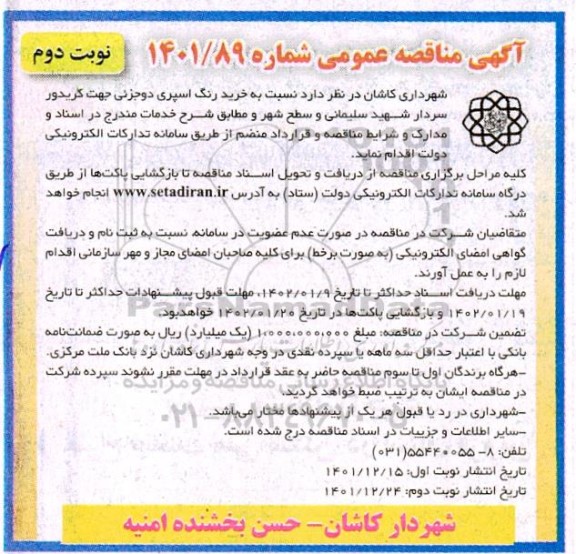 آگهی مناقصه عمومی شماره ۱۴۰۱/۸۹
نوبت دوم
شهرداری کاشان در نظر دارد نسبت به خرید رنگ اسپری دوجزئی جهت کریدور
سردار شهید سلیمانی و سطح شهر و مطابق شرح خدمات مندرج در اسناد و
مدارک و شرایط مناقصه و قرارداد منضم از طریق سامانه تدارکات الکترونیکی
دولت اقدام نماید.
کلیه مراحل برگزاری مناقصه از دریافت و تحویل اسناد مناقصه تا بازگشایی پاکت‌ها از طریق
درگاه سامانه تدارکات الکترونیکی دولت (ستاد) به آدرس www.setadiran.ir انجام خواهد
شد.
متقاضیان شرکت در مناقصه در صورت عدم عضویت در سامانه، نسبت به ثبت نام و دریافت
گواهی امضای الکترونیکی (به صورت برخط) برای کلیه صاحبان امضای مجاز و مهر سازمانی اقدام
لازم را به عمل آورند.
مهلت دریافت اسناد حداکثر تا تاریخ ۱۴۰۲/۰۱/۹، مهلت قبول پیشنهادات حداکثر تا تاریخ
۱۴۰۲/۰۱/۱۹ و بازگشایی پاکت‌ها در تاریخ ۱۴۰۲/۰۱/۲۰ خواهدبود.
تضمین شرکت در مناقصه: مبلغ ۱،۰۰۰،۰۰۰،۰۰۰ (یک میلیارد) ریال به صورت ضمانت‌نامه
بانکی با اعتبار حداقل سه ماهه یا سپرده نقدی در وجه شهرداری کاشان نزد بانک ملت مرکزی.
-هرگاه برندگان اول تا سوم مناقصه حاضر به عقد قرارداد در مهلت مقرر نشوند سپرده شرکت
در مناقصه ایشان به ترتیب ضبط خواهد گردید.
-شهرداری در رد یا قبول هر یک از پیشنهادها مختار می‌باشد.
-سایر اطلاعات و جزییات در اسناد مناقصه درج شده است.
تلفن: ۸- ۵۵۴۴۰۰۵۵(۰۳۱)
تاریخ انتشار نوبت اول: ۱۴۰۱/۱۲/۱۵
تاریخ انتشار نوبت دوم: ۱۴۰۱/۱۲/۲۴
شهردار کاشان- حسن بخشنده امنیه